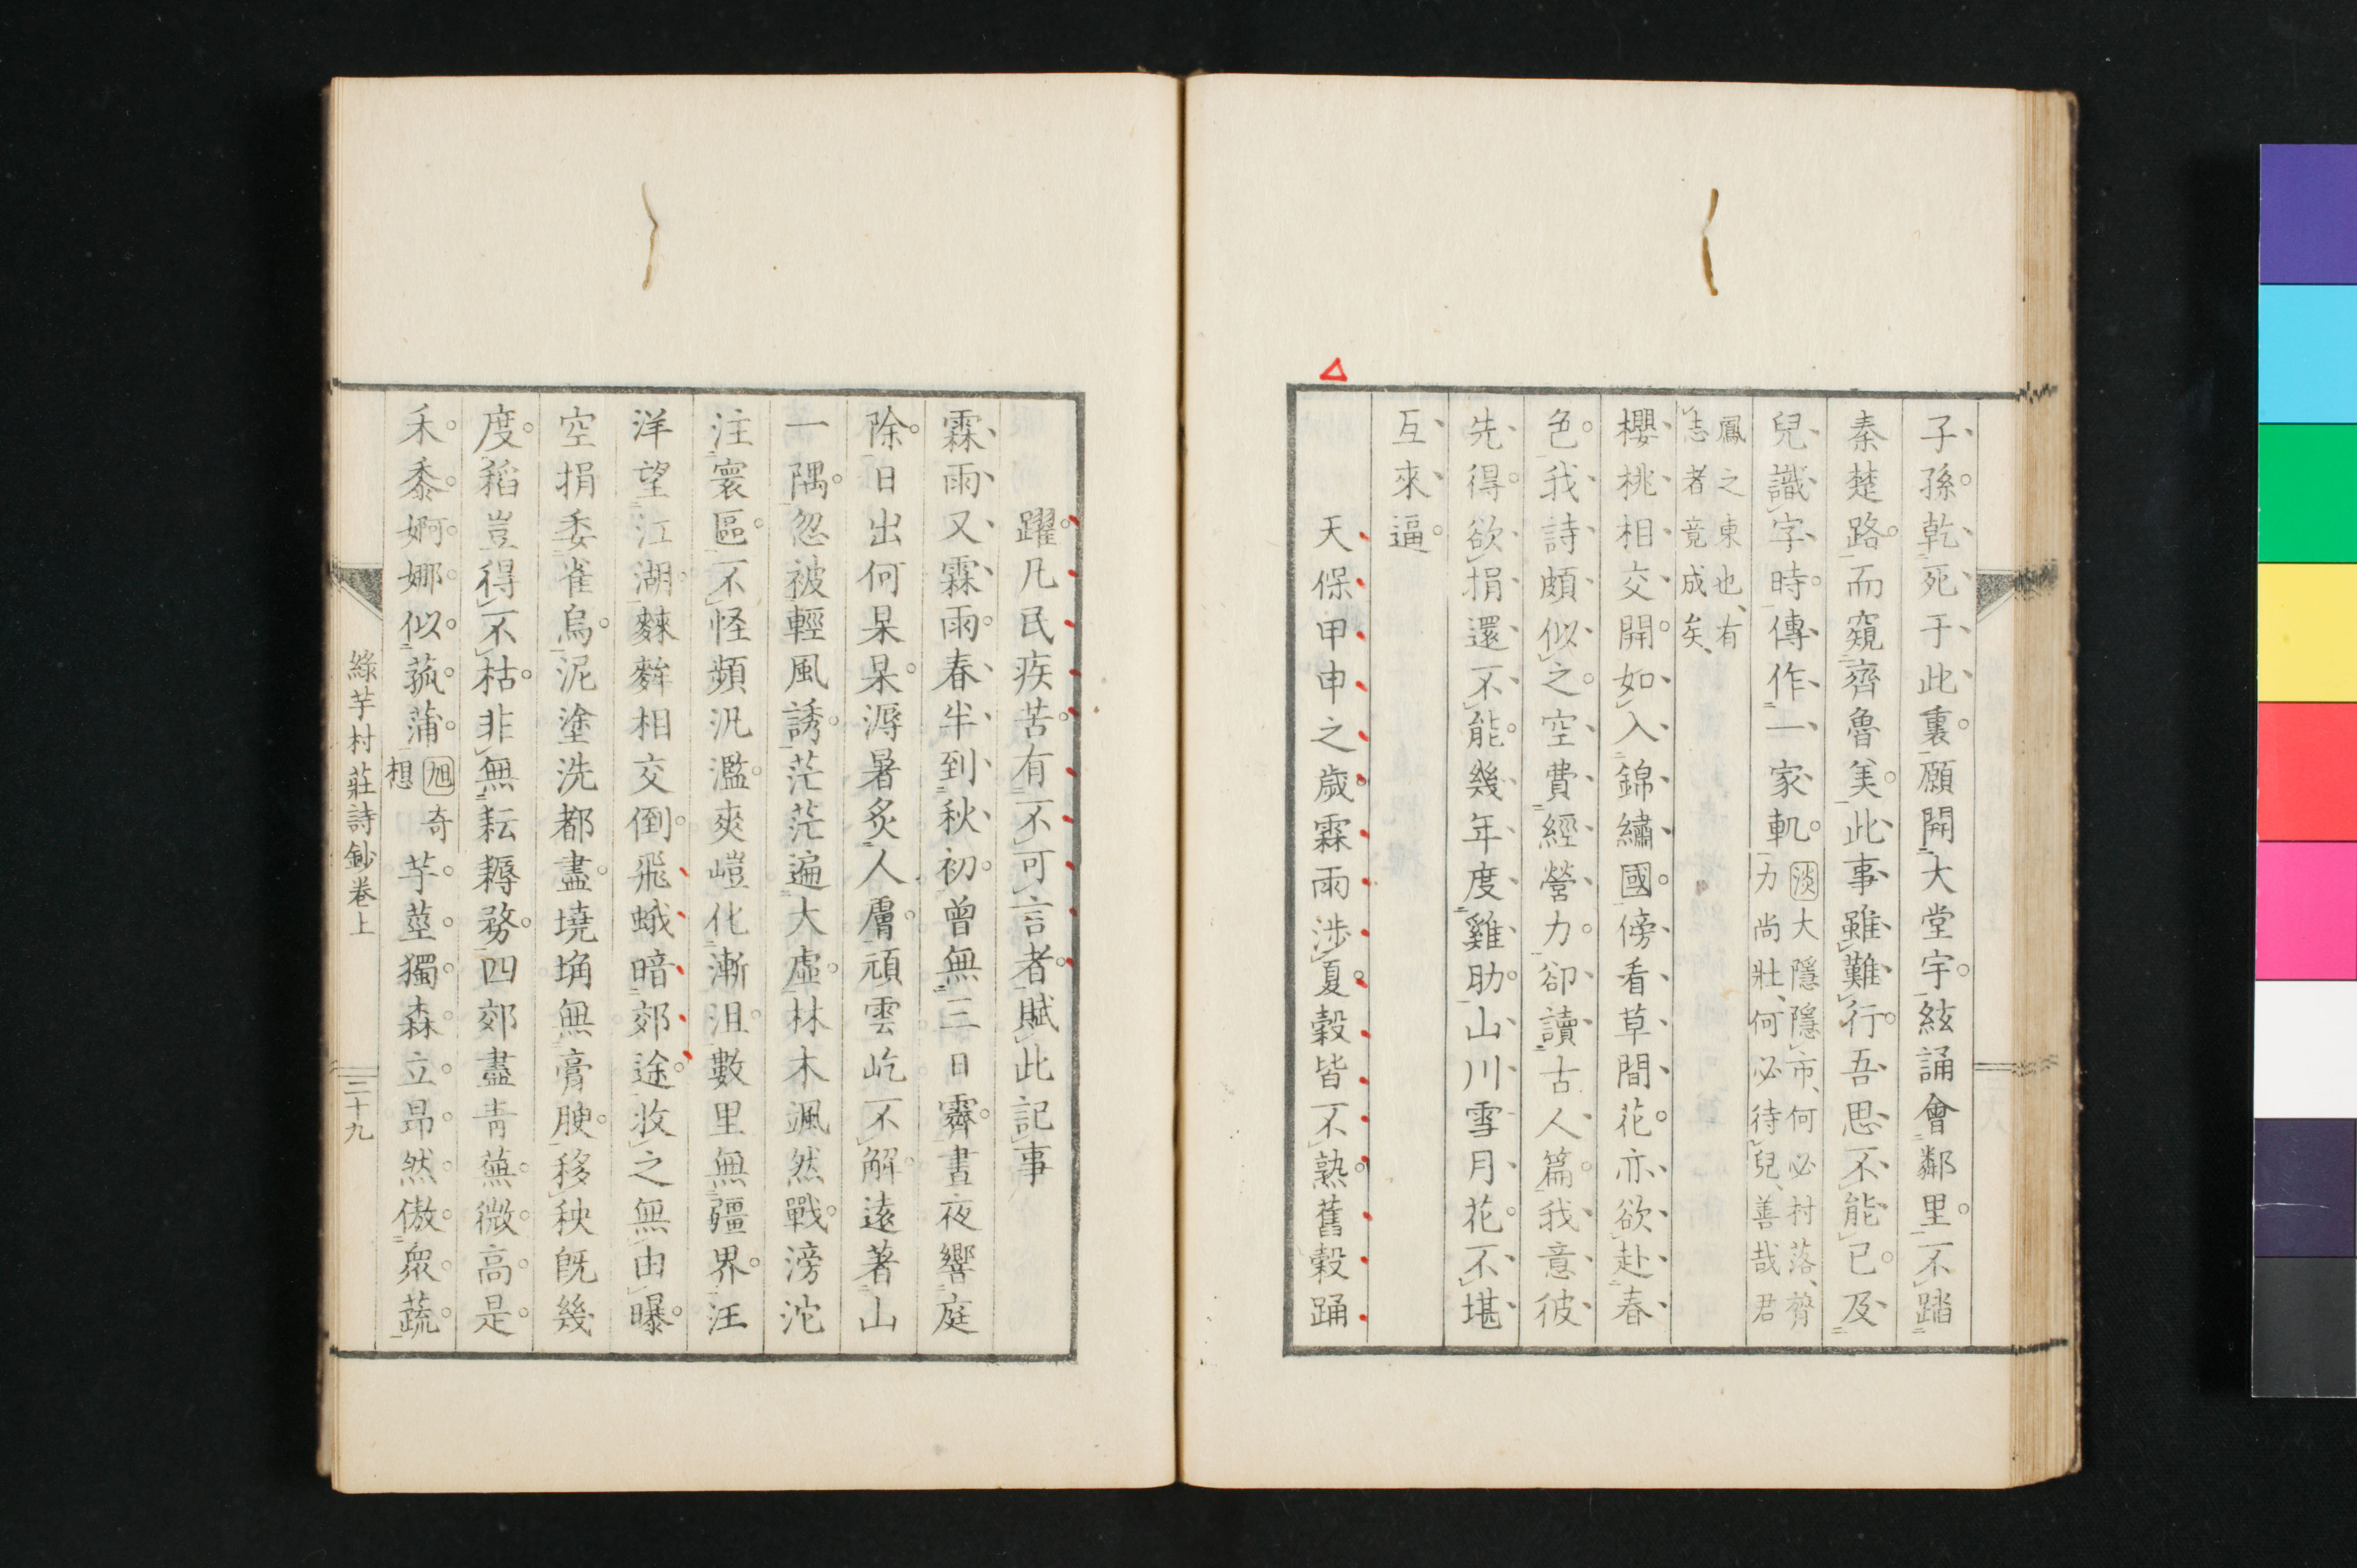 子孫乾死于此裏願開大堂宇絃誦會鄰里不踏
秦楚路而窺齊魯美此事雖難行吾思不能已及
兒識字時傳作一家軌
淡大隱隱市何必村落齊
力尚壯何必待兒善哉君
鳳之東也有
志者竟成矣
櫻桃相交開如入錦繡國傍看草間花亦欲赴春
色我詩頗似之空費經營力卻讀古人篇我意彼
先得欲捐還不能幾年度雞肋山川雪月花不堪
互來逼
天保甲申之歲霖雨涉夏穀皆不熟舊穀踊
躍凡民疾苦有不可言者賦此記事
霖雨又霖雨春半到秋初曾無三日霽晝夜響庭
除日出何杲杲溽暑炙人膚頑雲屹不解遠著山
一隅忽被輕風誘茫茫遍大虛林木颯然戰滂沱
注寰區不怪頻汎濫爽嵦化漸沮數里無疆界汪
洋望江湖麳麰相交倒飛蛾暗郊途收之無由曝
空捐委雀烏泥塗洗都盡墝埆無膏腴移秧既幾
度稻豈得不枯非無耘耨務四郊盡青蕪微高是
禾黍婀娜似菰蒲
旭奇
想
芋莖獨森立昂然傲衆蔬
綠芋村莊詩鈔卷上
二十九